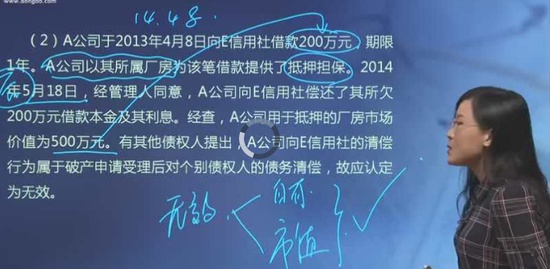 www.dongao.com
14.4.8
(2)A公司于2013年4月8日向E信用社借款200万元,期限
1年。A公司以其所属厂房为该笔借款提供了抵押担保。2014
年5月18日,经管理人同意,A公司向E信用社偿还了其所欠
200万元借款本金及其利息。经查,A公司用于抵押的厂房市
场价值为500万元。有其他债权人提出,A公司向E信用社的清偿
行为属于破产申请受理后对个别债权人的债务清偿,故应认定
为无效。
无效
自有
市值